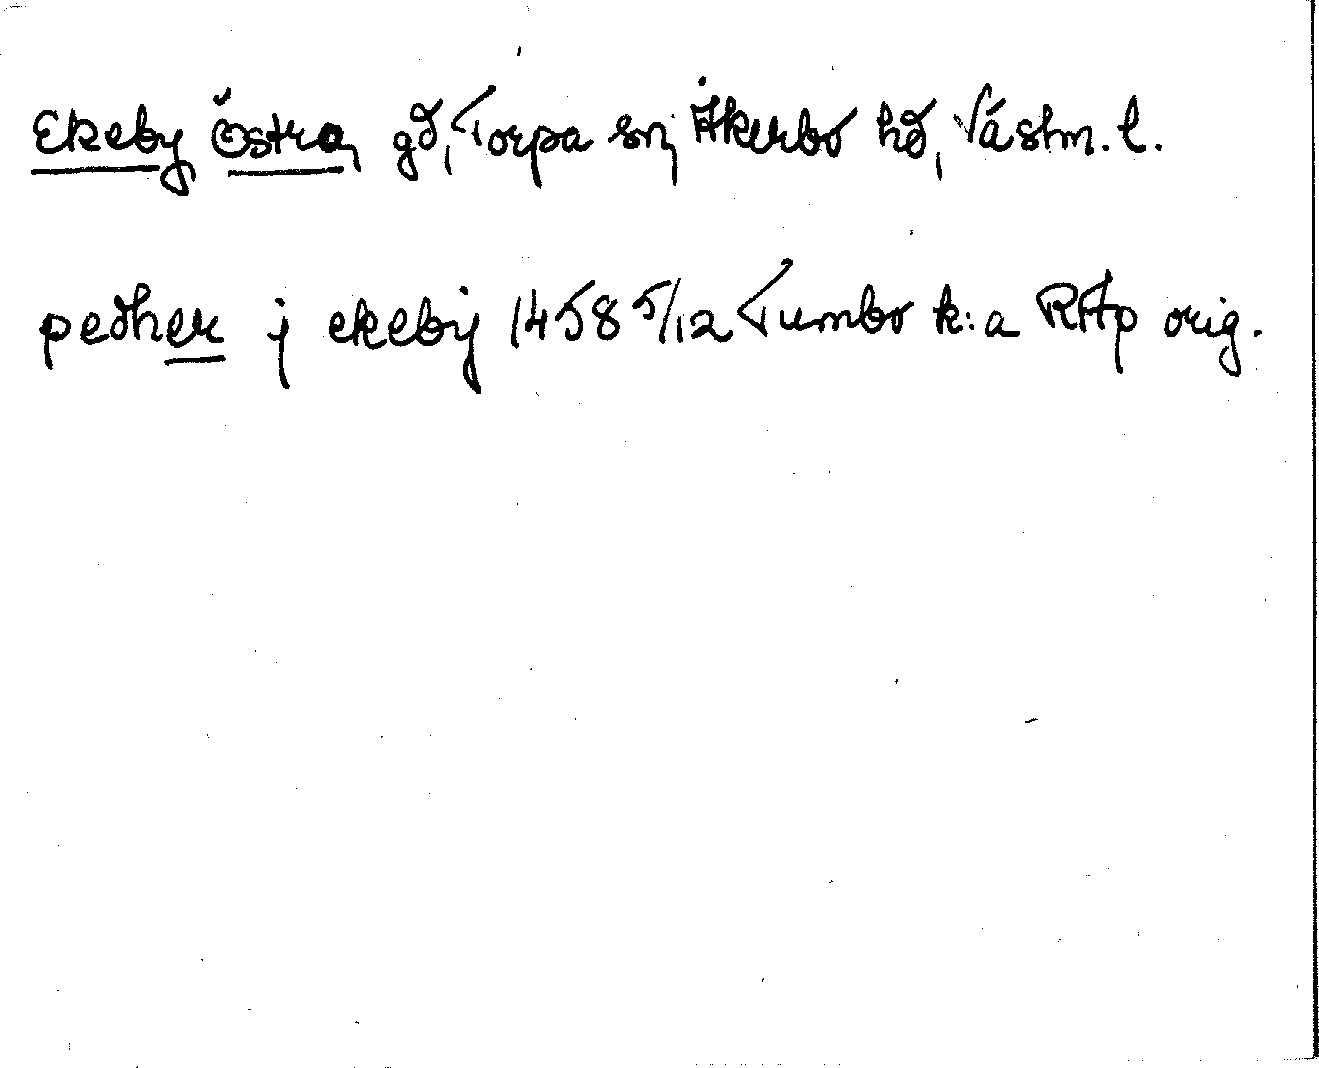 Ekeby Östra, gd, Torpa sn, Åkerbo hd, Västm. l.
pedher j ekebÿ 1458 5/12 Tumbo k:a RAp orig.